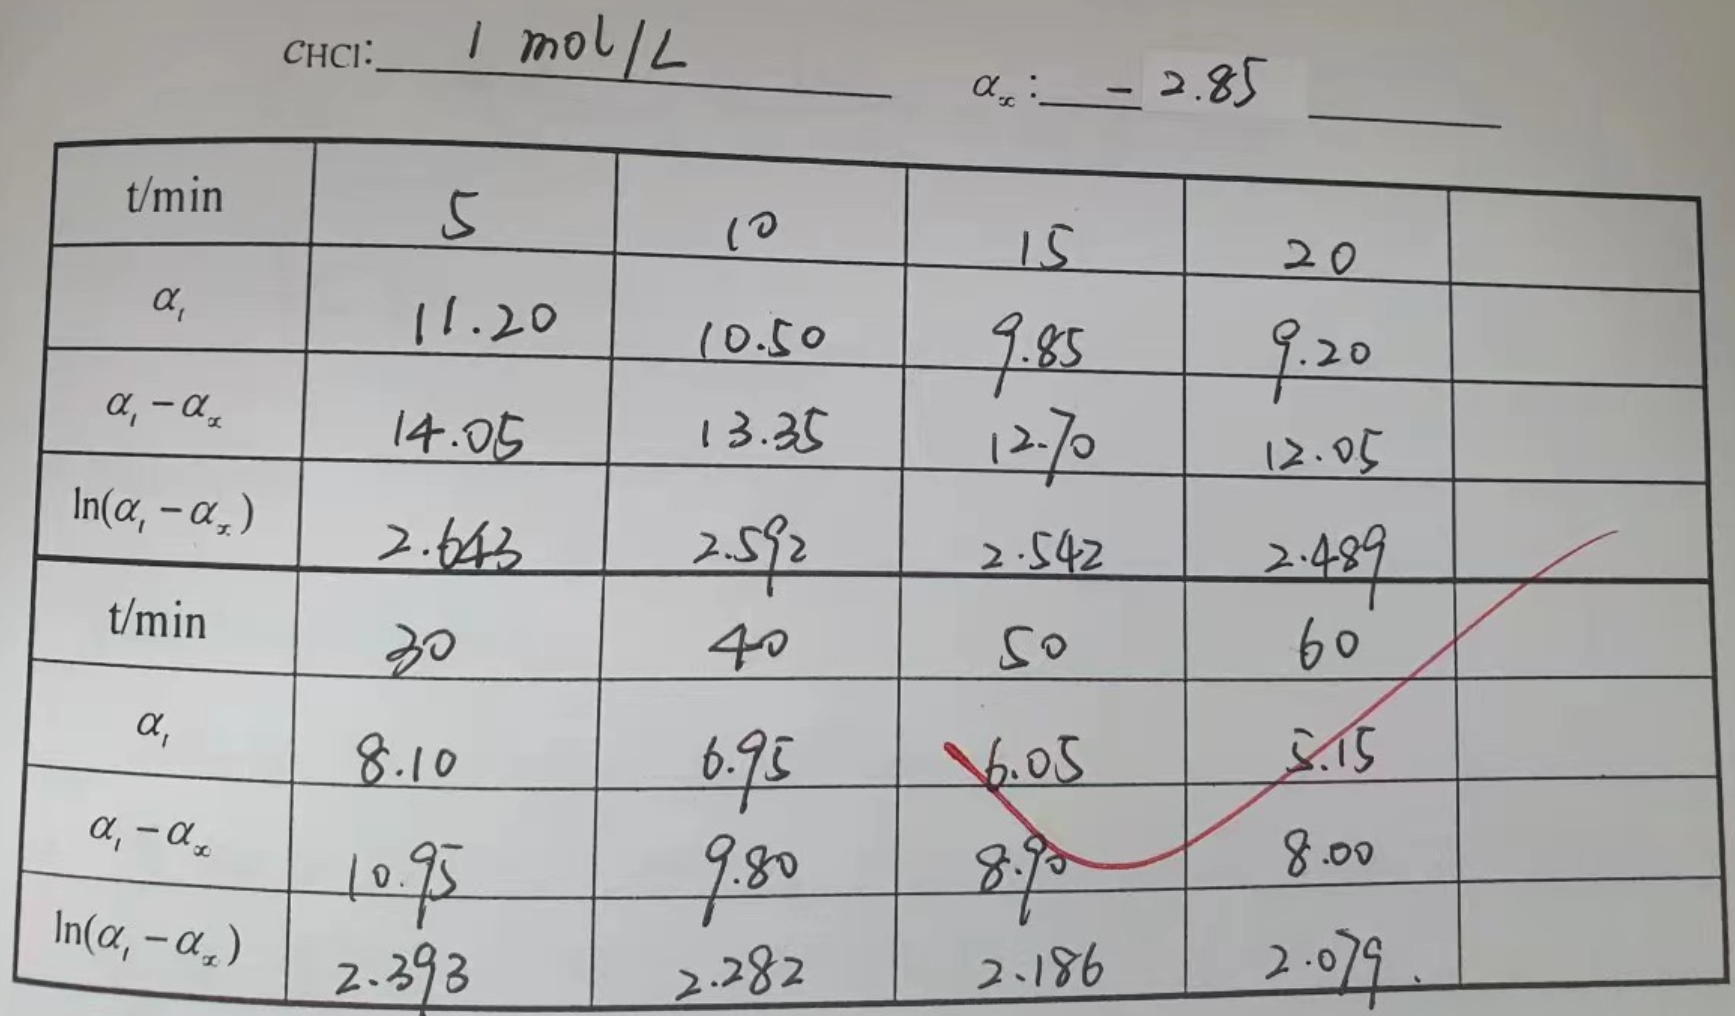 CHCl: 1 mol/L α∞: - 2.85
t/min 5 10 15 20
αt 11.20 10.50 9.85 9.20
αt - α∞ 14.05 13.35 12.70 12.05
ln(αt - α∞) 2.643 2.592 2.542 2.489
t/min 30 40 50 60
αt 8.10 6.95 6.05 5.15
αt - α∞ 10.95 9.80 8.90 8.00
ln(αt - α∞) 2.393 2.282 2.186 2.079.